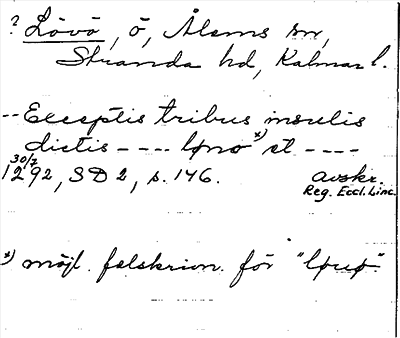 ? Lövö, ö, Ålems sn,
Stranda hd, Kalmar l.
-- Exceptis tribus insulis
dictis ---- lønø x) et ----
30/7
1292, SD 2, s. 146. avskr.
Reg. Eccl. Linc.
x) möjl. felskrivn. för "løuø".